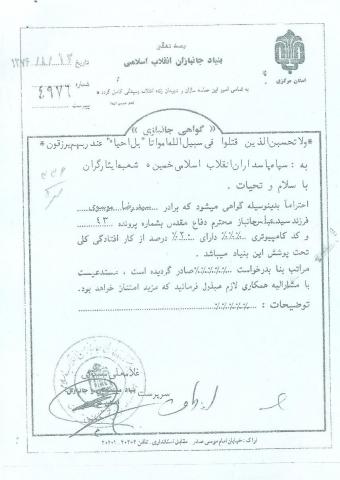 بسمه تعالی
بنیاد جانبازان انقلاب اسلامی
استان مرکزی
تاریخ ۱۳۷۶/۸/۱۳
شماره ۴۹۷۶
پیوست
به تمامی امور این حماسه سازان و
« گواهی جانبازی »
ولا تحسبن الذین قتلوا فی سبیل الله امواتا" بل احیاء" عند ربهم یرزقون
به : سپاه پاسداران انقلاب اسلامی خمین ه شعبه ایثارگران
با سلام و تحیات .
احتراما بدینوسیله گواهی میشود که برادر سیدرضا موسوی
فرزند سیدعباس جانباز محترم دفاع مقدس بشماره پرونده ۴۳
و کد کامپیوتری ٪٪٪ دارای درصد از کار افتادگی کلی
تحت پوشش این بنیاد میباشد .
مراتب بنا بدرخواست ٪٪٪٪٪٪ صادر گردیده است ، مستدعیست
با مشارالیه همکاری لازم مبذول فرمائید که مزید امتنان خواهد بود.
توضیحات : ٪٪٪٪٪٪
سرپرست
بنیاد مستضعفان و جانبازان
اراک . خیابان امام موسی صدر مقابل استانداری . تلفن ۲۰۲۰۲ ۲۰۲۰۱